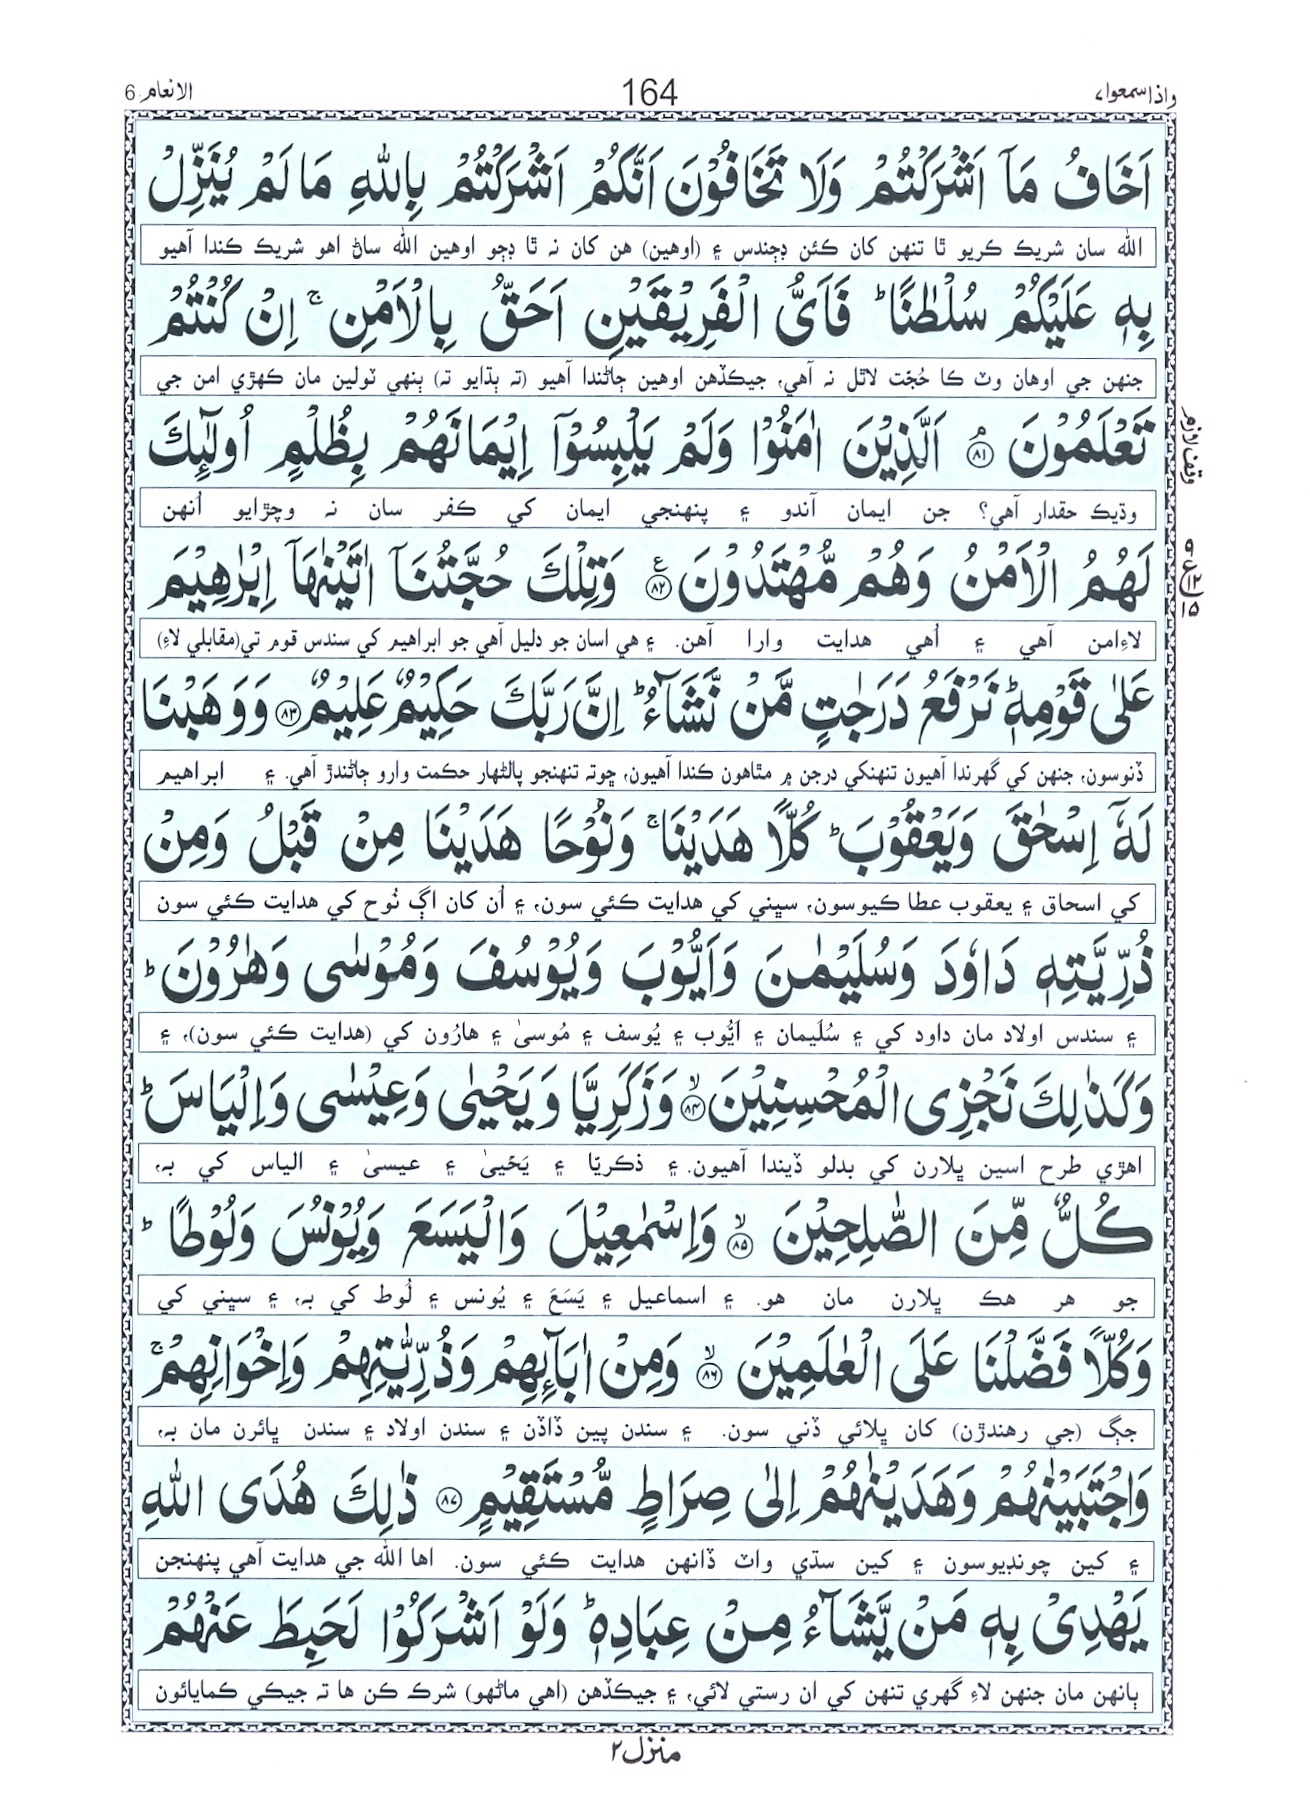 واذاسمعوا٧ 164 الانعام 6
اَخَافُ مَآ اَشْرَكْتُمْ وَلَا تَخَافُوْنَ اَنَّكُمْ اَشْرَكْتُمْ بِاللّٰهِ مَا لَمْ يُنَزِّلْ
الله سان شريڪ ڪريو ٿا تنهن کان ڪئن ڊڄندس ۽ (اوهين) هن کان نہ ٿا ڊڄو اوهين الله ساڻ اهو شريڪ ڪندا آهيو
بِهٖ عَلَيْكُمْ سُلْطٰنًا ؕ فَاَىُّ الْفَرِيْقَيْنِ اَحَقُّ بِالْاَمْنِ ۚ اِنْ كُنْتُمْ
جنهن جي اوهان وٽ ڪا حُجّت لاٿل نہ آهي، جيڪڏهن اوهين ڄاڻندا آهيو (تہ ٻڌايو تہ) ٻنهي ٽولين مان ڪهڙي امن جي
تَعْلَمُوْنَ ۘ ﴿۸۱﴾ اَلَّذِيْنَ اٰمَنُوْا وَلَمْ يَلْبِسُوْٓا اِيْمَانَهُمْ بِظُلْمٍ اُولٰٓئِكَ
وڌيڪ حقدار آهي؟ جن ايمان آندو ۽ پنهنجي ايمان کي ڪفر سان نہ وچڙايو اُنهن
لَهُمُ الْاَمْنُ وَهُمْ مُّهْتَدُوْنَ ﴿۸۲﴾ ع وَتِلْكَ حُجَّتُنَآ اٰتَيْنٰهَآ اِبْرٰهِيْمَ
لاءِامن آهي ۽ اُهي هدايت وارا آهن. ۽ هي اسان جو دليل آهي جو ابراهيم کي سندس قوم تي(مقابلي لاءِ)
عَلٰى قَوْمِهٖ ؕ نَرْفَعُ دَرَجٰتٍ مَّنْ نَّشَآءُ ؕ اِنَّ رَبَّكَ حَكِيْمٌ عَلِيْمٌ ﴿۸۳﴾ وَوَهَبْنَا
ڏنوسون، جنهن کي گهرندا آهيون تنهنکي درجن ۾ مٿاهون ڪندا آهيون، ڇوتہ تنهنجو پالڻهار حڪمت وارو ڄاڻندڙ آهي. ۽ ابراهيم
لَهٗٓ اِسْحٰقَ وَيَعْقُوْبَ ؕ كُلًّا هَدَيْنَا ۚ وَنُوْحًا هَدَيْنَا مِنْ قَبْلُ وَمِنْ
کي اسحاق ۽ يعقوب عطا ڪيوسون، سڀني کي هدايت ڪئي سون، ۽ اُن کان اڳ نُوح کي هدايت ڪئي سون
ذُرِّيَّتِهٖ دَاوٗدَ وَسُلَيْمٰنَ وَاَيُّوْبَ وَيُوْسُفَ وَمُوْسٰى وَهٰرُوْنَ ؕ
۽ سندس اولاد مان داود کي ۽ سُلَيمان ۽ ايُّوب ۽ يُوسف ۽ مُوسىٰ ۽ هارُون کي (هدايت ڪئي سون)، ۽
وَكَذٰلِكَ نَجْزِى الْمُحْسِنِيْنَ ۙ ﴿۸۴﴾ وَزَكَرِيَّا وَيَحْيٰى وَعِيْسٰى وَاِلْيَاسَ ؕ
اهڙي طرح اسين ڀلارن کي بدلو ڏيندا آهيون. ۽ ذڪريّا ۽ يَحْيىٰ ۽ عيسىٰ ۽ الياس کي بہ،
كُلٌّ مِّنَ الصّٰلِحِيْنَ ۙ ﴿۸۵﴾ وَاِسْمٰعِيْلَ وَالْيَسَعَ وَيُوْنُسَ وَلُوْطًا ؕ
جو هر هڪ ڀلارن مان هو. ۽ اسماعيل ۽ يَسَعَ ۽ يُونس ۽ لُوط کي بہ، ۽ سڀني کي
وَكُلًّا فَضَّلْنَا عَلَى الْعٰلَمِيْنَ ۙ ﴿۸۶﴾ وَمِنْ اٰبَآئِهِمْ وَذُرِّيّٰتِهِمْ وَاِخْوَانِهِمْ ۚ
جڳ (جي رهندڙن) کان ڀلائي ڏني سون. ۽ سندن پين ڏاڏن ۽ سندن اولاد ۽ سندن ڀائرن مان بہ،
وَاجْتَبَيْنٰهُمْ وَهَدَيْنٰهُمْ اِلٰى صِرَاطٍ مُّسْتَقِيْمٍ ﴿۸۷﴾ ذٰلِكَ هُدَى اللّٰهِ
۽ کين چونڊيوسون ۽ کين سڌي واٽ ڏانهن هدايت ڪئي سون. اها الله جي هدايت آهي پنهنجن
يَهْدِىْ بِهٖ مَنْ يَّشَآءُ مِنْ عِبَادِهٖ ؕ وَلَوْ اَشْرَكُوْا لَحَبِطَ عَنْهُمْ
ٻانهن مان جنهن لاءِ گهري تنهن کي ان رستي لائي، ۽ جيڪڏهن (اهي ماڻهو) شرڪ ڪن ها تہ جيڪي ڪمايائون
منزل٢